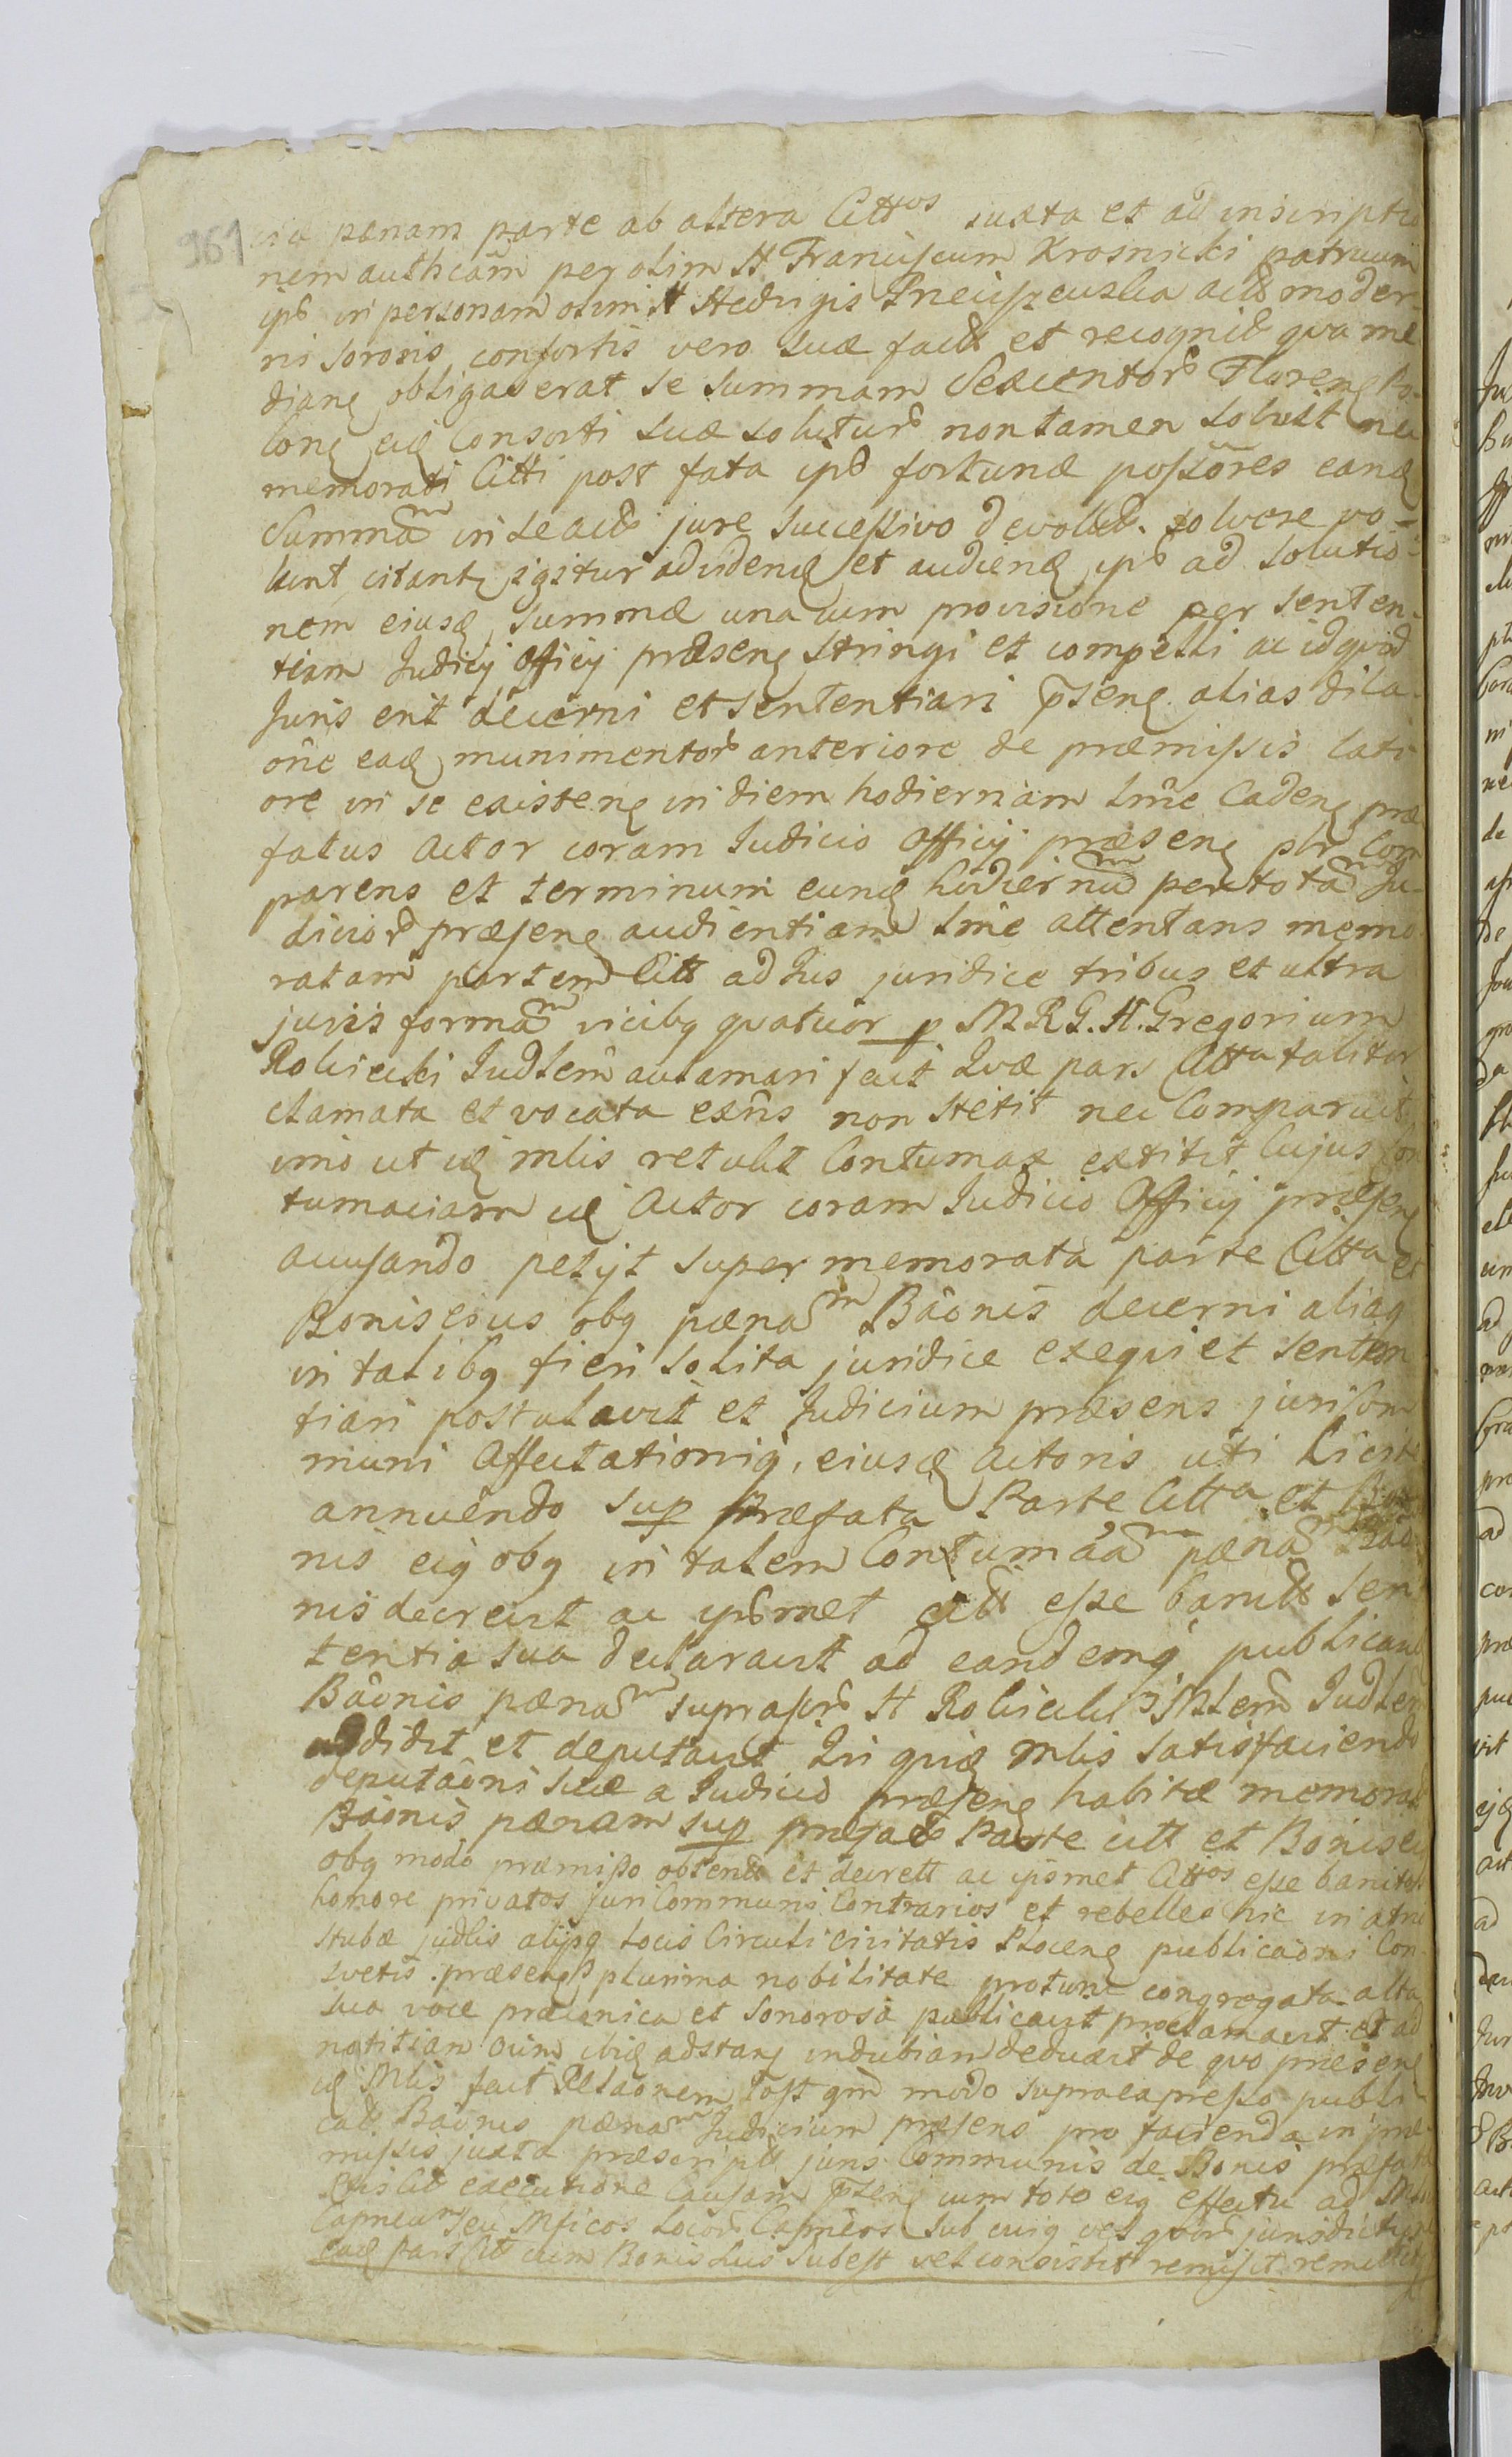 961
pænam parte ab altera Citt^os juxta et ad inscriptio
nem authcam per olim H Franciscum Krosnicki patruum
ipõ in personam olim H Hedvigis actõ moder-
ni sororis consortis vero suæ factã et recognitã qua me
dianę obligaverat se summam Sexcentorũ Florenę Po-
lonę eię Consorti suæ soluturũ non tamen solvit nec
memorati Citti post fata ipõ fortunæ possores eanę
Summã^m in se actõ jure successivo devolutã solvere vo-
lunt, citantę igitur ad videnę et audienę ipõ ad solutio-
nem eiusę summæ una cum provisione per senten-
tiam Judicij officij præsenę stringi et compelli ac id quod
Juris erit decerni et sententiari p̃senę. alias dila-
oñe eaę munimentorũ anteriore de præmissis lati
ore in se existenę in diem hodiernam lm̃e Cadenę præ
fatus actor coram Judicio officij præsenę plr Com
parens et terminum eunę hodiernũ^m per totã^m Ju-
diciorũ præsenę audientiam lm̃e attentans memo
ratam partem Citt ad Jus juridice tribus et ultra
juris formã^m vicibq quatuor p M R G. H. Gregorium
Rolicki Judlem aclamari fecit Quæ pars Citta taliter
clamata et vocata exñs non stetit nec Comparuit
imo ut ię mlis retulit Contumax extitit Cujus Con
tumaciam ię Actor coram Judicio Officij præsenę
accusando petijt super memorata parte Citta et
Bonis eius obq pænã^m Bãonis decerni aliaq
in talibq fieri solita juridice exequi et senten
tiari postulavit et Judicium præsens juri Com
muni Affectationiq, eiusę actoris uti licite
annuendo sup præfata Parte Citt^a et Bo
nis eiq obq in talem Contumãã^m pænã^m Bão
nis decrevit ac ipõmet cittõ esse banitõ Sen
tentia sua declaravit ad eandemq publicand
Bãonis pænã^m suprascrõ H Rolicki Mlem Judlem
addidit et deputavit Qui quię mlis satisfaciendo
deputãoni suæ a Judicio præsenę habitæ memoratã
Bãonis pænam sup præfatã Parte citt et Bonis ei
obq modo præmisso obtentã et decrett ac ipõmet Citt^os esse banitos
honore privatos juri Communi Contrarios et rebelles hic in atrio
stubæ judlis alijsq locis Circuli civitatis Plocenę publicãoni Con-
svetis præsenę plurima nobilitate protunc congregata alta
sua voce præconica et sonorosa publicavit proclamavit et ad
notitiam oim̃ ibię adstanę indubiam deduxit de quo præsenę
ię Mlis fecit Relãonem Post qm̃ modo supraexpresso publi
catã Bãonis pænã^m Judicium præsens pro facienda in præ-
missis juxta præscriptã juris Communis de Bonis præfatæ
Ptis Citt executione Causam p̃senę cum toto eiq effectu ad Mfic
Capneum seu Mficos locorũ Capneos sub cuiq vel quorũ jurisdictione
eaę pars Citt cum Bonis suis subest vel consistit remisit remittitq